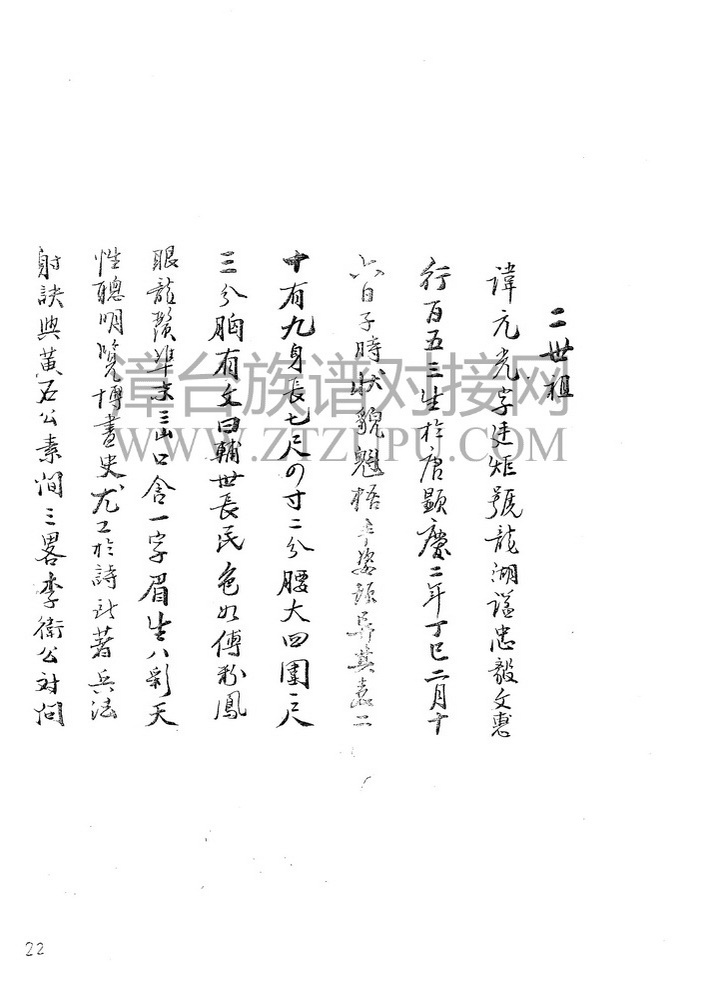 二世祖
諱元光字廷炬號龍湖謚忠毅文惠
行百五三生於唐顯慶二年丁巳二月十
六日子時狀貌魁梧丰姿頭異其表二
十有九身長七尺四寸二分腰大四圍三尺
三分胸有文曰輔世長民色如傅粉鳳
眼龍鬚準末三山口含一字眉生八彩天
性聰明覽博書史尤工於詩所著兵法
射訣與黃石公素問三畧李衛公對问
漳台族谱对接网
WWW.ZTZUPU.COM
22